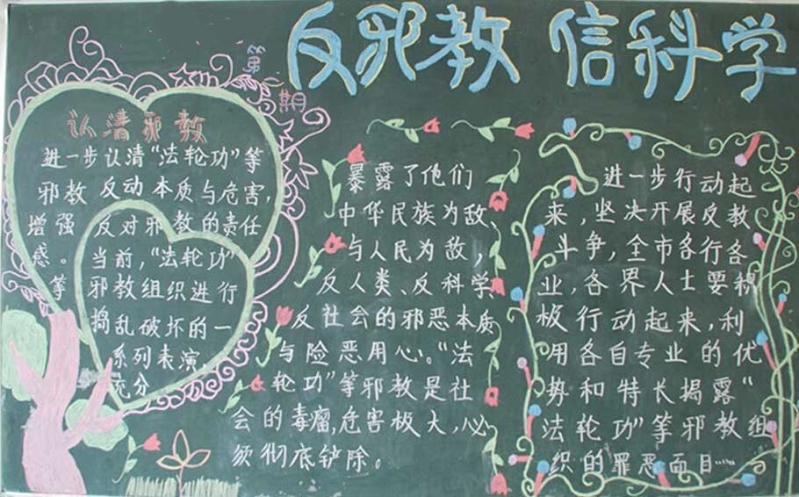 反邪教 信科学
第二期
认清邪教
进一步认清“法轮功”等
邪教 反动本质与危害，
增强 反对邪教的责任
感。 当前，“法轮功”
等 邪教组织进行
捣乱破坏的一
系列表演，
充分
暴露了他们
中华民族为敌、
与人民为敌，
反人类、反科学、
反社会的邪恶本质
与险恶用心。“法
轮功”等邪教是社
会的毒瘤，危害极大，必
须彻底铲除。
进一步行动起
来，坚决开展反教
斗争，全市各行各
业，各界人士要积
极行动起来，利
用各自专业的优
势和特长揭露“
法轮功”等邪教组
织的罪恶面目……